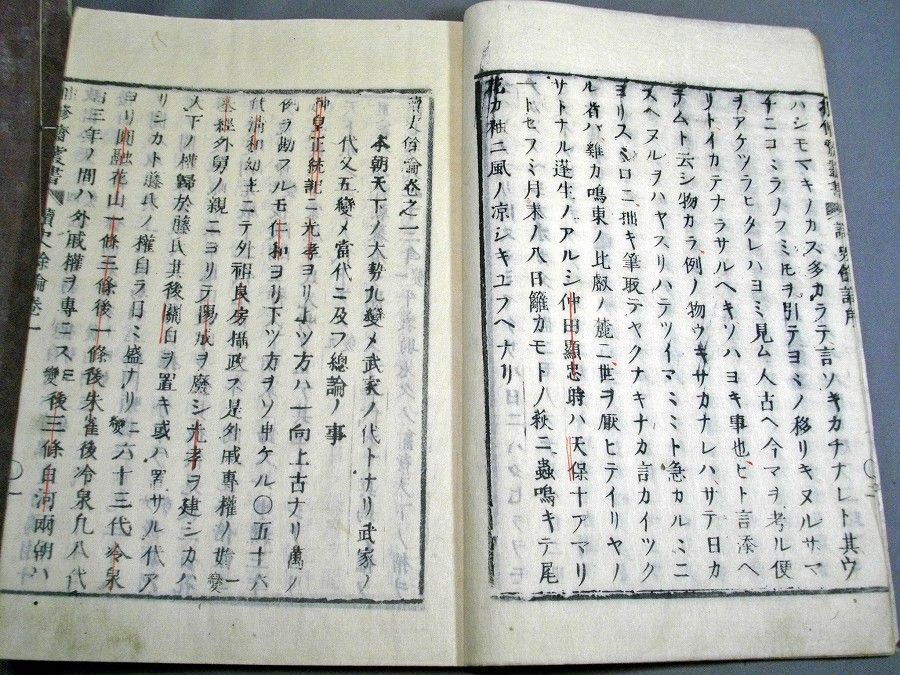 ハシモマキノカス多カラテ言ソキカチナレト其ウ
チニコミラノフミ𪜈ヲ引テヨミノ移リキヌルサマ
ヲアケツラヒタレハヨミ見ム人古ヘ今マヲ考ル便
リトイカテナラサルヘキソハヨキ事也ヒト言添ヘ
テムト云シ物カラ例ノ物ウキサカナレハサテ日カ
スヘヌルヲハヤスリハテツイマミミト急カルミニ
ヨリスミロニ拙キ筆取テヤクナキナカ言カイツク
ル者ハ雞カ鳴東ノ比叡ノ麓ニ世ヲ厭ヒテイリヤノ
サトナル蓬生ノアルシ仲田顯忠時ハ天保十アマリ
一トセフミ月末ノ八日籬カモトノ萩ニ蟲鳴キテ尾
花カ袖ニ風ノ凉シキユフヘナリ
讀史餘論卷之一
本朝天下ノ大勢九變メ武家ノ代トナリ武家ノ
代又五變メ當代ニ及フ總論ノ事
神皇正統記ニ光孝ヨリ上ツ方ハ一向上古ナリ萬ノ
例ヲ勘フルモ仁和ヨリ下ツ方ヲソ申ケル〇五十六
代淸和幼主ニテ外祖良房攝政ス是外戚專權ノ始一變
基經外舅ノ親ニヨリテ陽成ヲ廢シ光孝ヲ建シカハ
天下ノ權歸於藤氏其後關白ヲ置キ或ハ置サル代ア
リシカト藤氏ノ權自ラ日ミ盛ナリ二變六十三代冷泉
ヨリ圓融花山一條三條後一條後朱雀後冷泉凡八代
百三年ノ間ハ外戚權ヲ專ニス三變後三條白河兩朝ハ
讀史餘論卷一